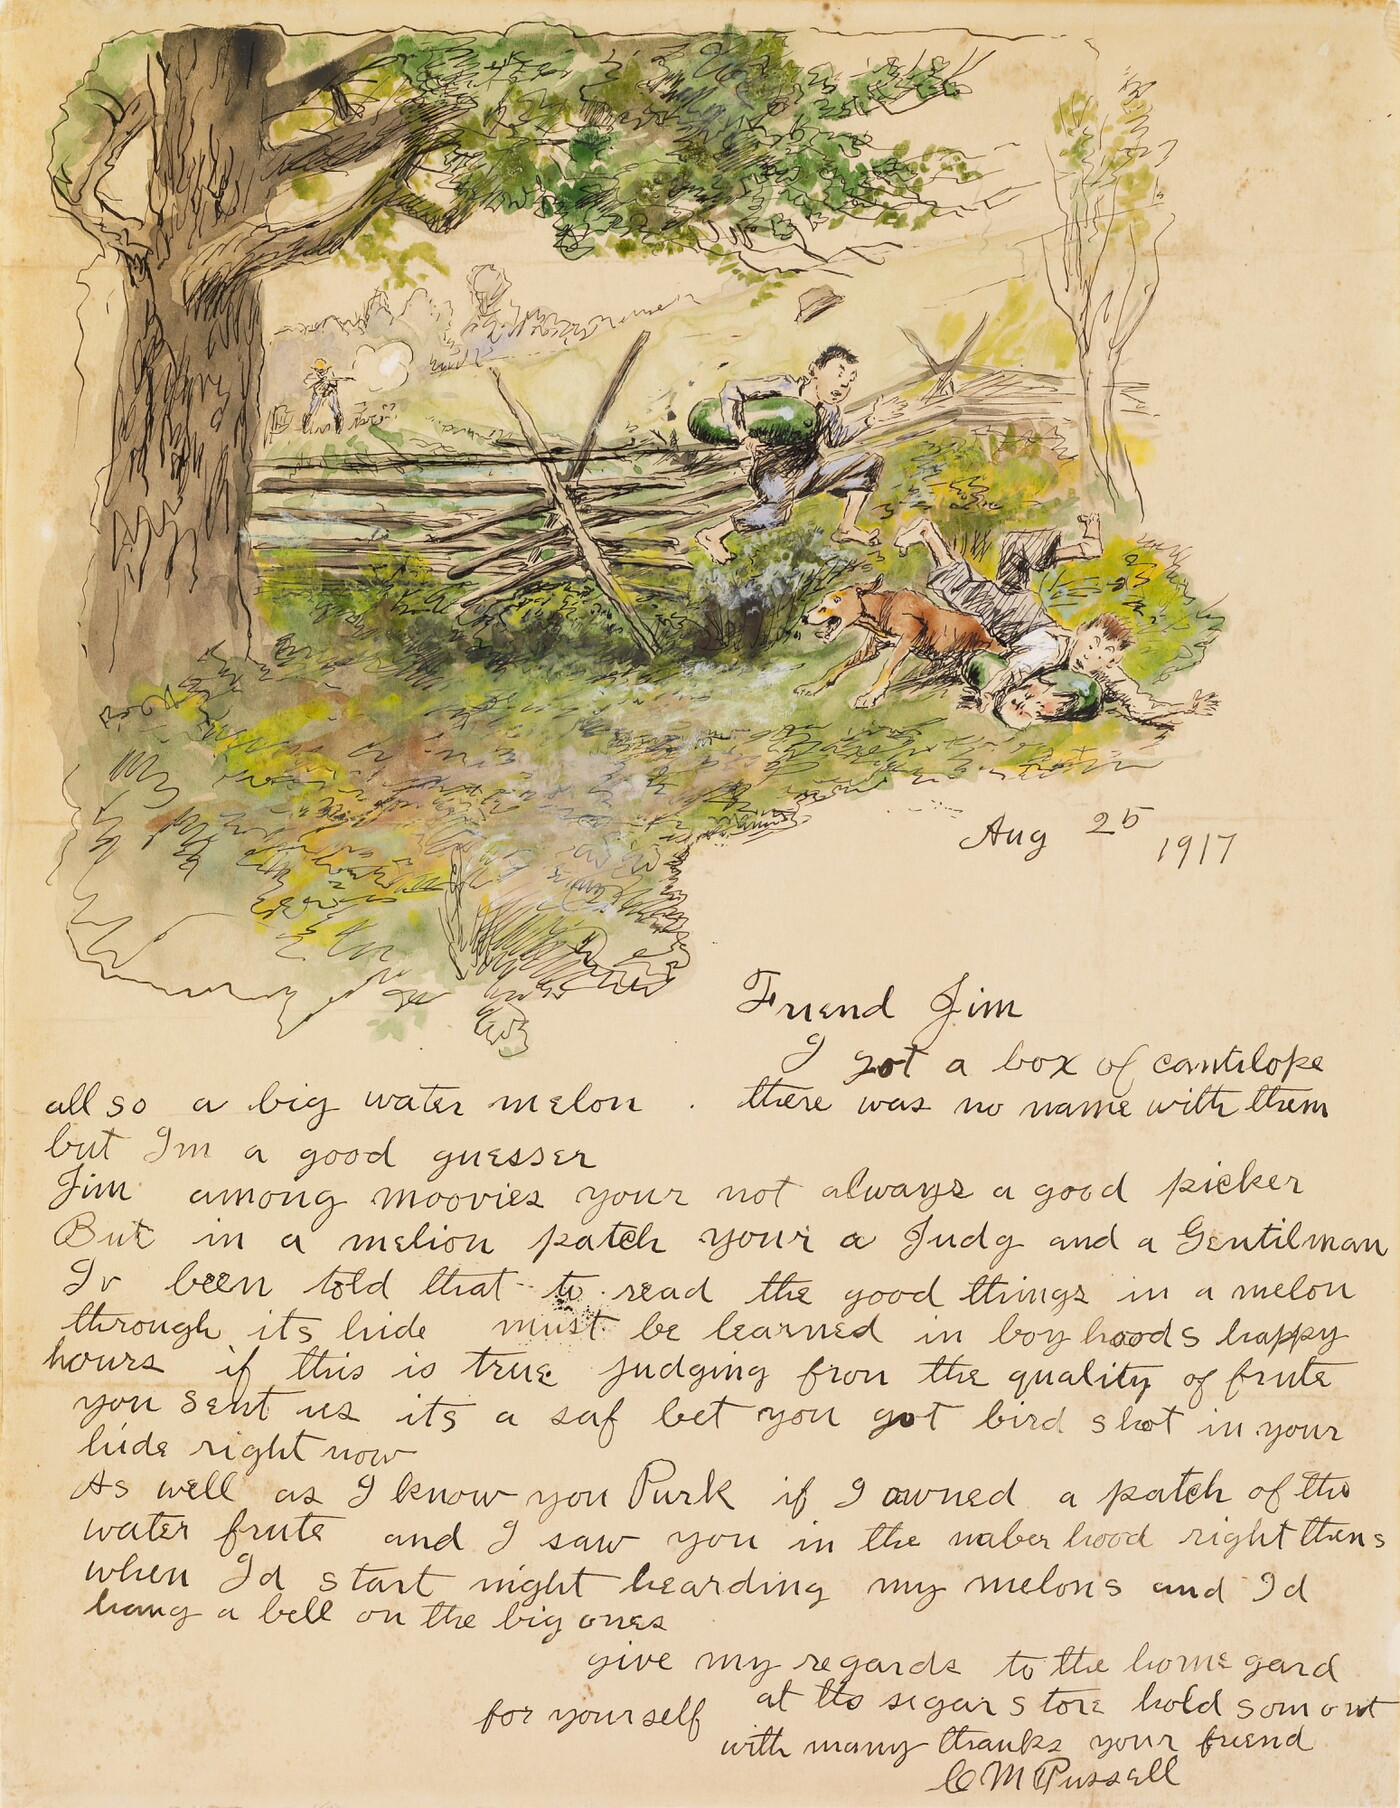 Aug 25 1917
Friend Jim
I got a box of cantilope
all so a big water melon . there was no name with them
but Im a good guesser
Jim among moovies your not always a good picker
But in a melion patch your a Judg and a Gentilman
Iv been told that to read the good things in a melon
through its hide must be learned in boy hoods happy
hours if this is true judging fron the quality of frute
you sent us its a saf bet you got bird shot in your
hide right now
As well as I know you Purk if I owned a patch of this
water frute and I saw you in the naber hood right thens
when Id start night hearding my melons and Id
hang a bell on the big ones
give my regards to the home gard
at the sigar store hold som out
for yourself
with many thanks your friend
C M Russell